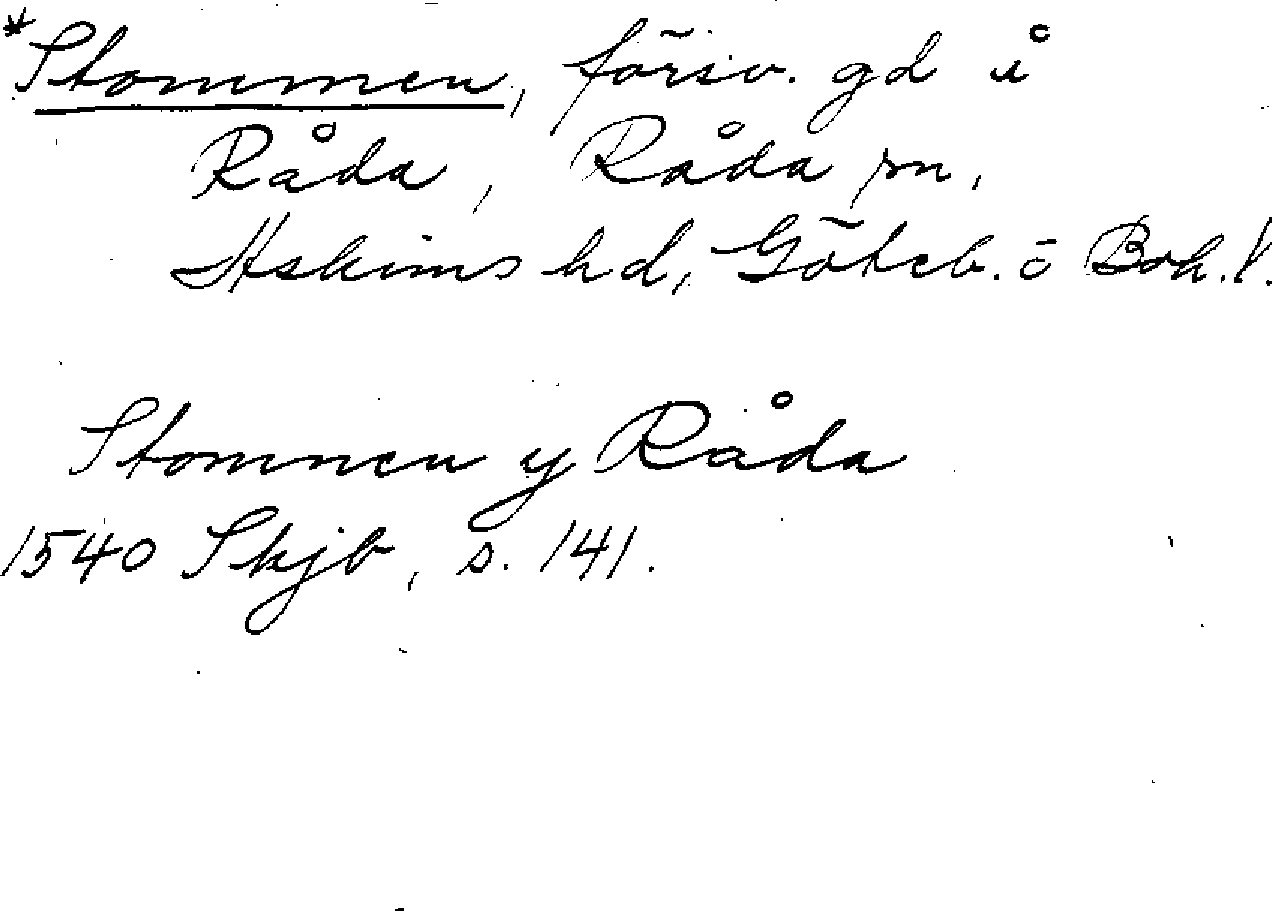 *Stommen, försv. gd i
Råda, Råda sn,
Askims hd, Göteb. o Boh. l.
Stomnen y Råda
1540 Skjb, s. 141.